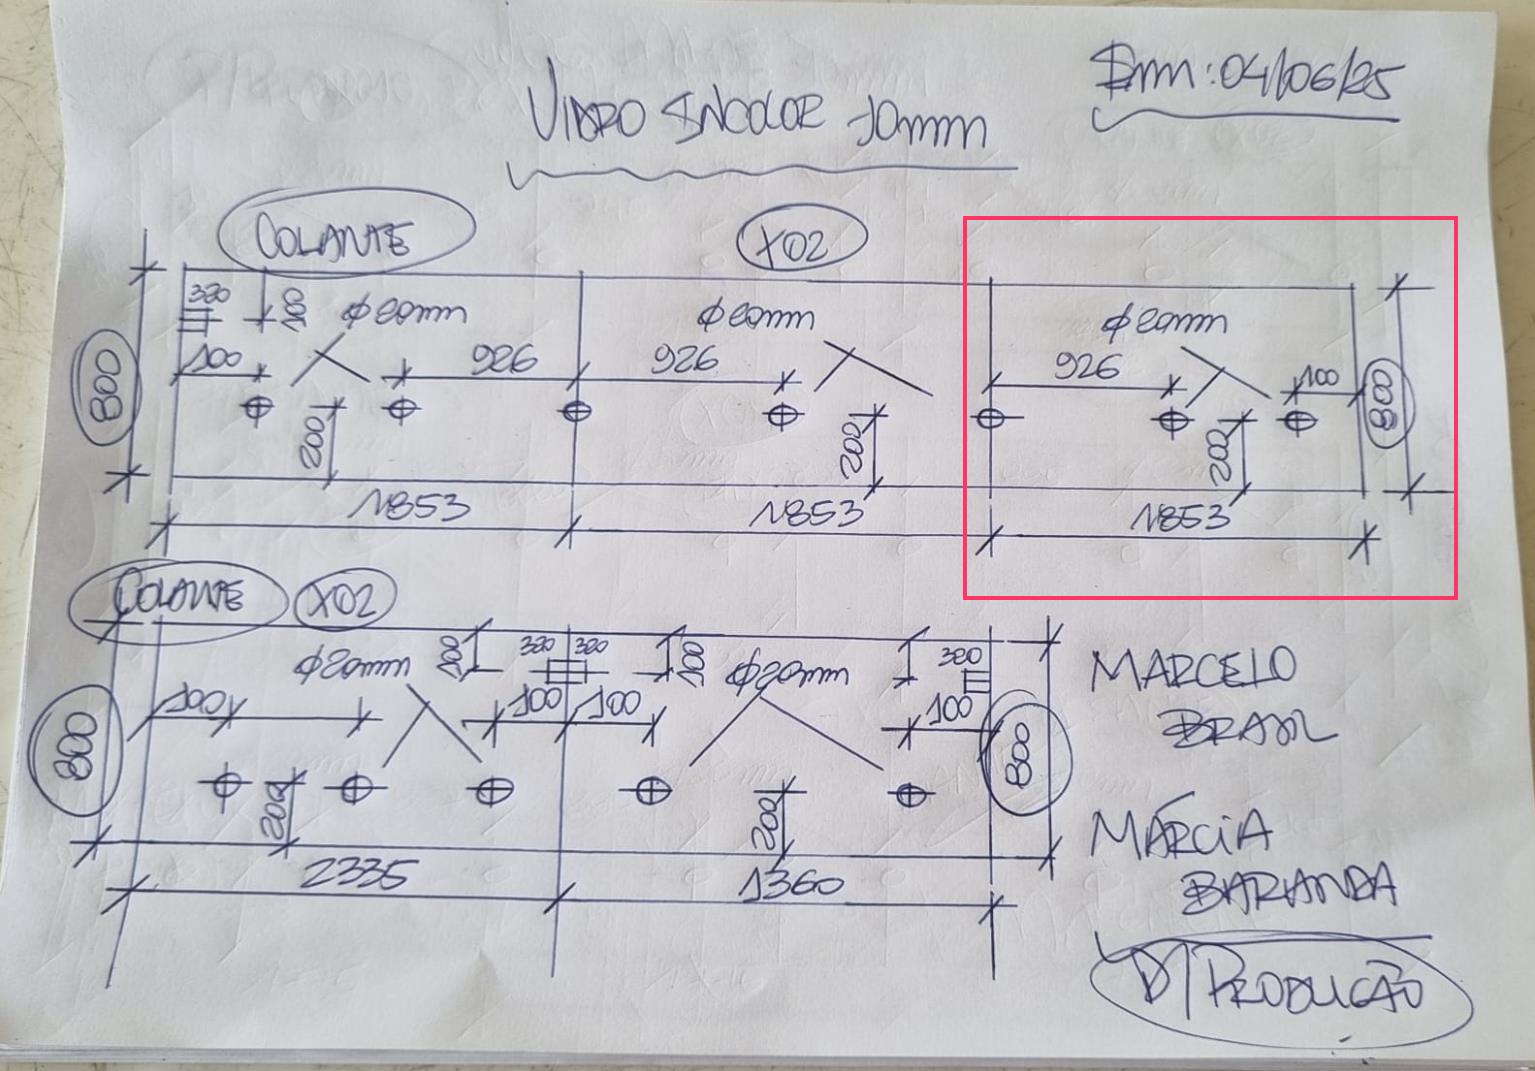 Em: 04/06/25
VIDRO INCOLOR 10mm
COLANTE
X02
320
100
φ20mm
φ20mm
φ20mm
100
926
926
926
100
800
800
200
200
200
1853
1853
1853
COLANTE X02
φ20mm
100
320 320
100
φ20mm
320
100
100 100
100
800
800
200
200
2335
1360
MARCELO
BRASIL
MÁRCIA
BARANDA
P/ PRODUÇÃO